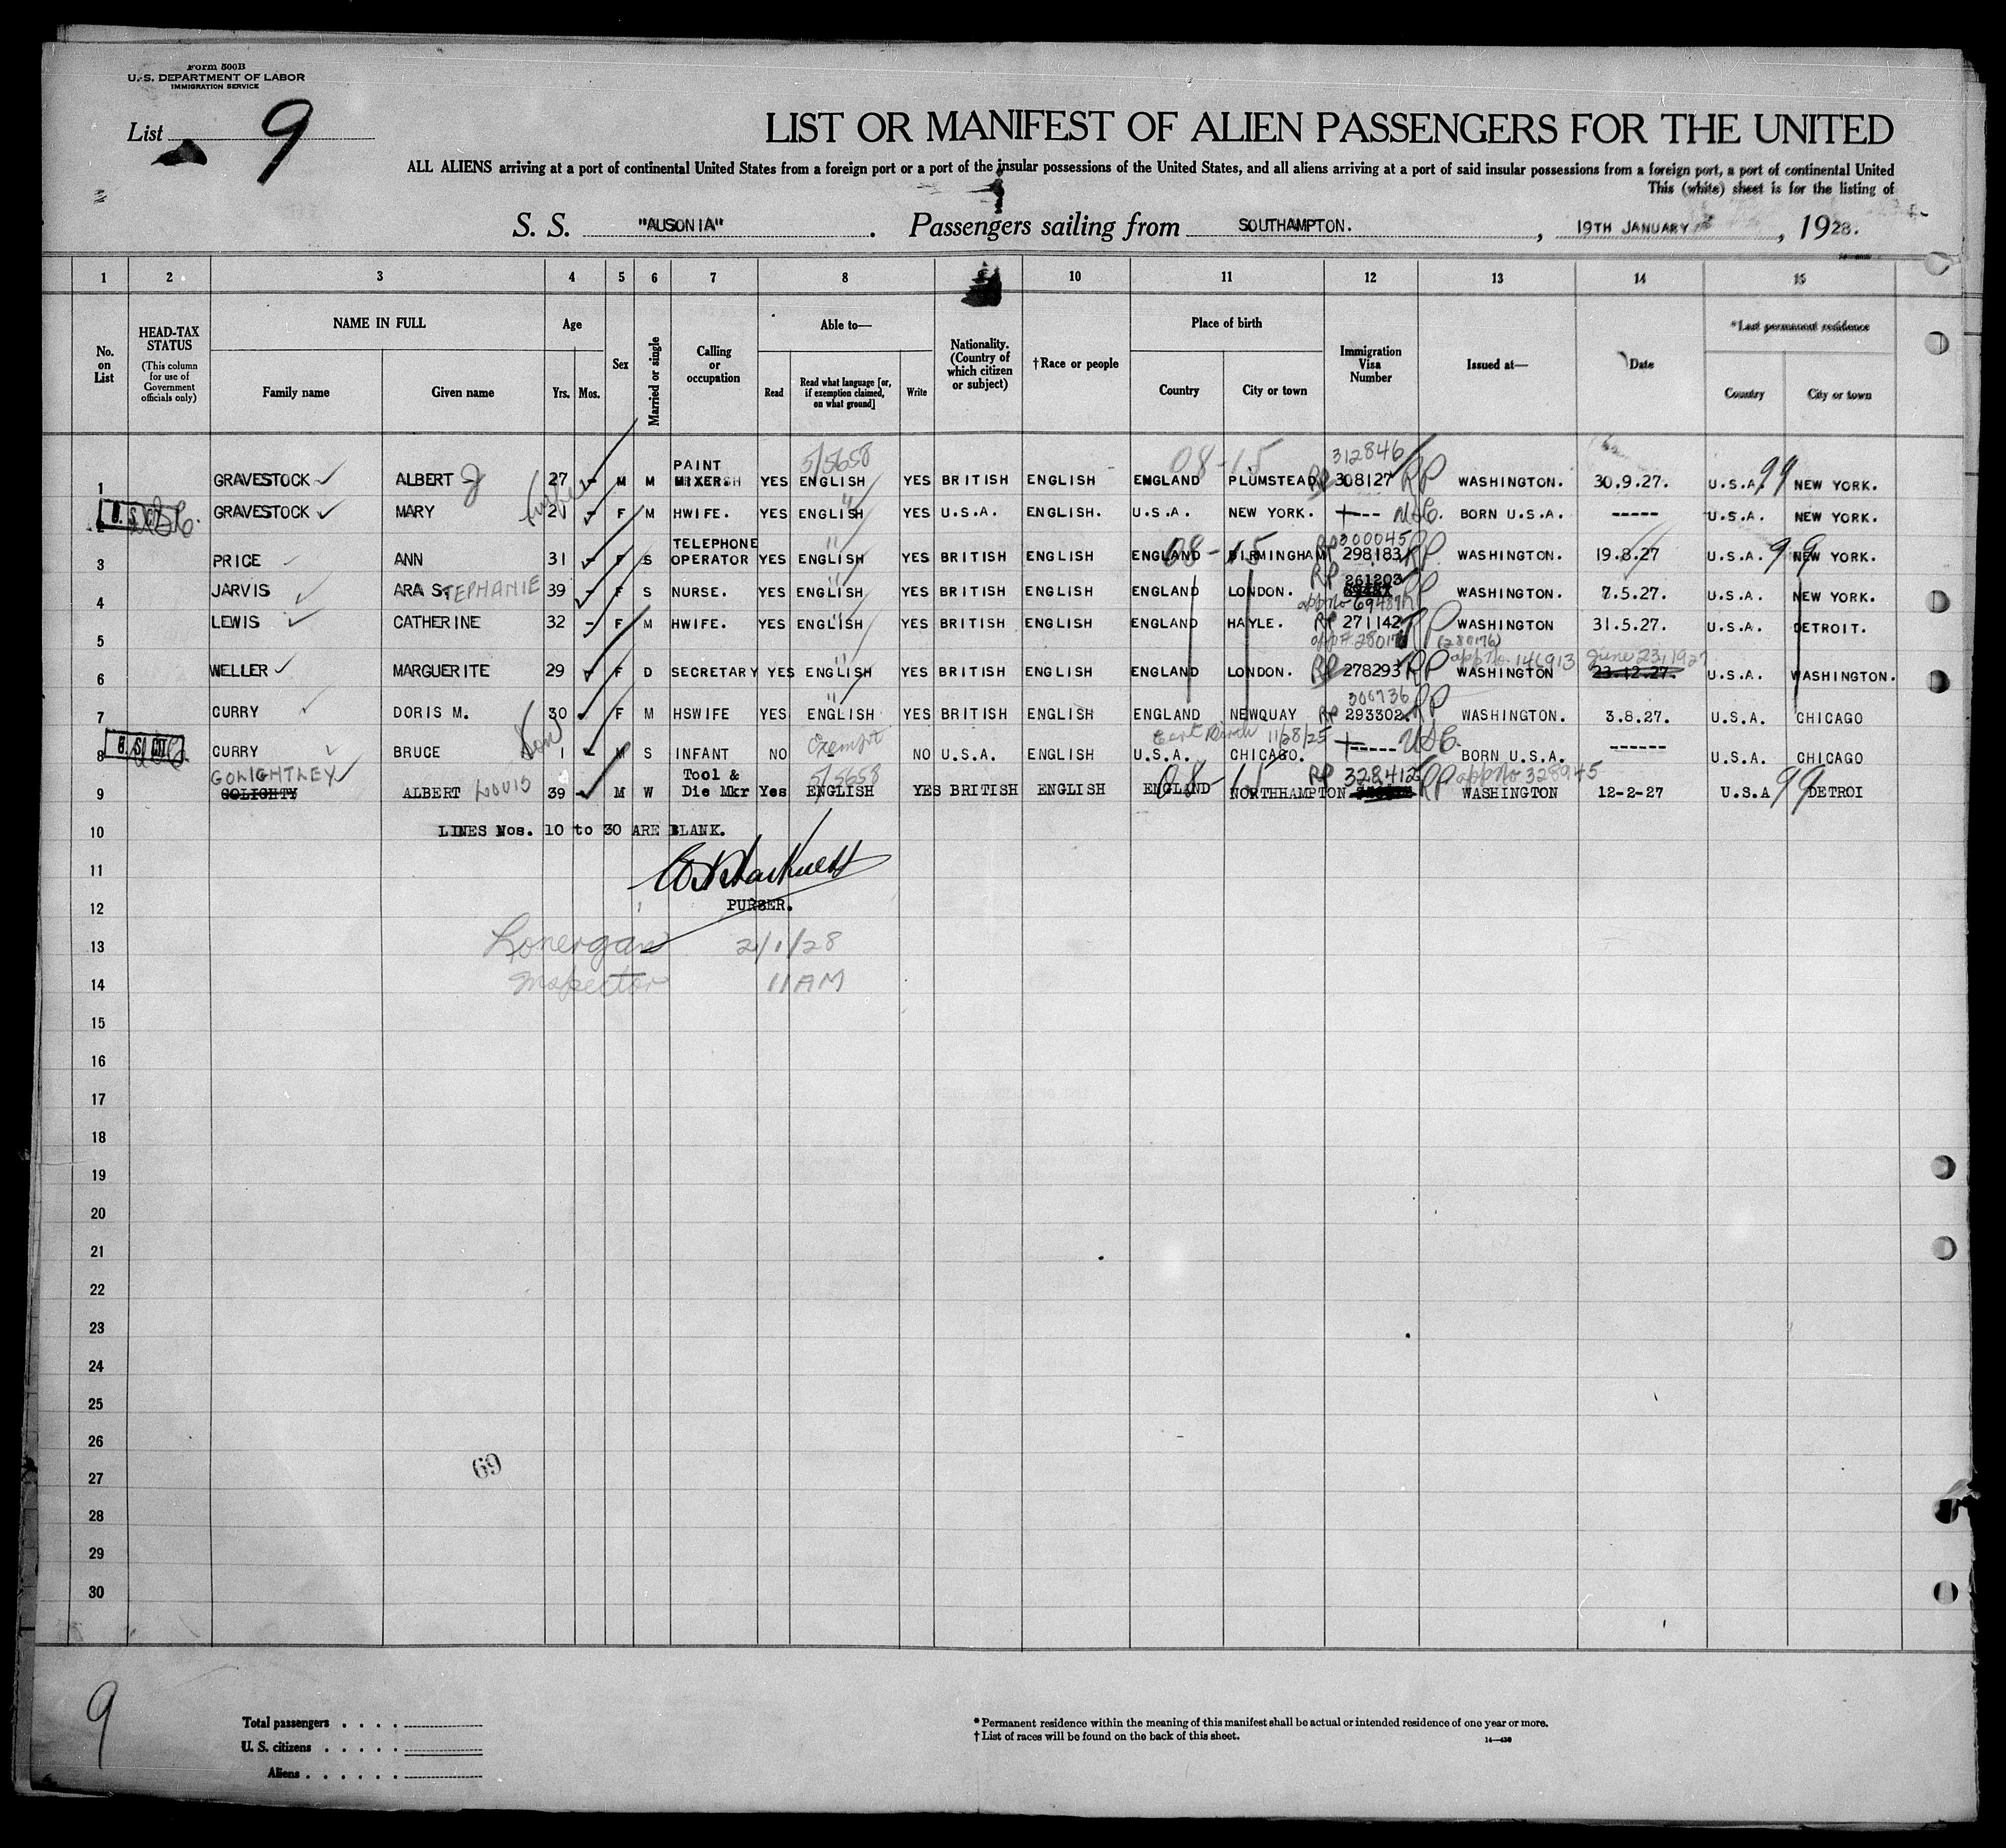 Form 500B
U.S. DEPARTMENT OF LABOR
IMMIGRATION SERVICE
List 9
LIST OR MANIFEST OF ALIEN PASSENGERS FOR THE UNITED
ALL ALIENS arriving at a port of continental United States from a foreign port or a port of the insular possessions of the United States, and all aliens arriving at a port of said insular possessions from a foreign port, a port of continental United
This (white) sheet is for the listing of
S. S. "AUSONIA". Passengers sailing from SOUTHAMPTON. , 19TH JANUARY , 1928.
1 2 3 4 5 6 7 8 10 11 12 13 14 15
No. on List
HEAD-TAX STATUS
(This column for use of Government officials only)
NAME IN FULL
Family name Given name
Age
Yrs. Mos.
Sex
Married or single
Calling or occupation
Able to—
Read Read what language [or, if exemption claimed, on what ground] Write
Nationality. (Country of which citizen or subject)
†Race or people
Place of birth
Country City or town
Immigration Visa Number
Issued at—
Date
*Last permanent residence
Country City or town
5/5658 08-15 312846
1 GRAVESTOCK ALBERT J 27 - M M PAINT MIXER YES ENGLISH YES BRITISH ENGLISH ENGLAND PLUMSTEAD RP 308127 RP WASHINGTON. 30.9.27. U.S.A. 99 NEW YORK.
2 GRAVESTOCK MARY 21 - F M HWIFE. YES ENGLISH " YES U.S.A. ENGLISH. U.S.A. NEW YORK. +--- USC. BORN U.S.A. ----- U.S.A. NEW YORK.
RP 300045
3 PRICE ANN 31 - F S TELEPHONE OPERATOR YES ENGLISH " YES BRITISH ENGLISH ENGLAND 08-15 BIRMINGHAM 298183 RP WASHINGTON. 19.8.27 U.S.A. 99 NEW YORK.
4 JARVIS ARA STEPHANIE 39 - F S NURSE. YES ENGLISH " YES BRITISH ENGLISH ENGLAND LONDON. RP 261203 RP WASHINGTON. 7.5.27. U.S.A. NEW YORK.
app no 69487
5 LEWIS CATHERINE 32 - F M HWIFE. YES ENGLISH " YES BRITISH ENGLISH ENGLAND HAYLE. RP 271142 RP WASHINGTON 31.5.27. U.S.A. DETROIT.
(280176) app no. 146913 June 23, 1927
6 WELLER MARGUERITE 29 - F D SECRETARY YES ENGLISH " YES BRITISH ENGLISH ENGLAND LONDON. RP 278293 RP WASHINGTON 23.12.27. U.S.A. WASHINGTON.
300736
7 CURRY DORIS M. 30 F M HSWIFE YES ENGLISH " YES BRITISH ENGLISH ENGLAND NEWQUAY RP 293302. RP WASHINGTON. 3.8.27. U.S.A. CHICAGO
Cert Birth 11/28/25
8 CURRY BRUCE son 1 - M S INFANT NO Exempt - NO U.S.A. ENGLISH U.S.A. CHICAGO. +----- USC. BORN U.S.A. ------ U.S.A. CHICAGO
GOLIGHTLEY 5/5658 RP 328412 RP app no 328945
9 GOLIGHTY ALBERT LOUIS 39 M W Tool & Die Mkr Yes ENGLISH YES BRITISH ENGLISH ENGLAND 08 15 NORTHHAMPTON WASHINGTON 12-2-27 U.S.A 99 DETROI
10 LINES Nos. 10 to 30 ARE BLANK.
11
12 PURSER.
13 Lonergan 21/1/28
14 Inspector 11 AM
15
16
17
18
19
20
21
22
23
24
25
26
27
69
28
29
30
9
Total passengers . . . .
U. S. citizens . . . . .
Aliens . . . . . .
* Permanent residence within the meaning of this manifest shall be actual or intended residence of one year or more.
† List of races will be found on the back of this sheet.
14—430